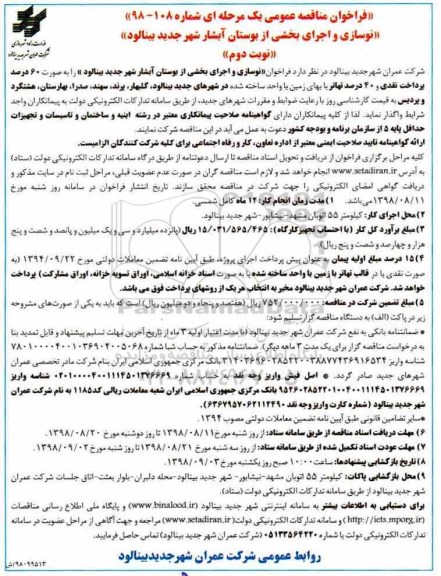 «فراخوان مناقصه عمومی یک مرحله ای شماره ۱۰۸-۹۸»
«نوسازی و اجرای بخشی از بوستان آبشار شهر جدید بینالود»
«نوبت دوم»
شرکت عمران شهر جدید بینالود در نظر دارد فراخوان «نوسازی و اجرای بخشی از بوستان آبشار شهر جدید بینالود» را به صورت ۶۰ درصد
پرداخت نقدی و ۴۰ درصد تهاتر با بهای زمین یا واحد ساخته شده در شهرهای جدید بینالود، گلبهار، پرند، سهند، صدرا، بهارستان، هشتگرد
و پردیس به قیمت کارشناسی روز با رعایت ضوابط و مقررات شهرهای جدید، از طریق سامانه تدارکات الکترونیکی دولت به پیمانکاران واجد
شرایط واگذار نماید. لذا از کلیه پیمانکاران دارای گواهینامه صلاحیت پیمانکاری معتبر در رشته ابنیه و ساختمان و تاسیسات و تجهیزات
حداقل پایه ۵ از سازمان برنامه و بودجه کشور دعوت به عمل می آید در این مناقصه شرکت نمایند.
ارائه گواهینامه تایید صلاحیت ایمنی معتبر از اداره تعاون، کار و رفاه اجتماعی برای کلیه شرکت کنندگان الزامیست.
کلیه مراحل برگزاری فراخوان از دریافت و تحویل اسناد مناقصه تا ارسال دعوتنامه از طریق درگاه سامانه تدارکات الکترونیکی دولت (ستاد)
به آدرس www.setadiran.ir انجام خواهد شد و لازم است مناقصه گران در صورت عدم عضویت قبلی، مراحل ثبت نام در سایت مذکور و
دریافت گواهی امضای الکترونیکی را جهت شرکت در مناقصه محقق سازند. تاریخ انتشار فراخوان در سامانه روز شنبه مورخ
۱۳۹۸/۰۸/۱۱ می باشد. ۱) مدت زمان انجام کار: ۱۲ ماه کامل شمسی.
۲) محل اجرای کار: کیلومتر ۵۵ اتوبان مشهد-نیشابور- شهر جدید بینالود.
۳) مبلغ برآورد کل کار (با احتساب تجهیز کارگاه): ۱۵/۰۳۱/۵۶۵/۴۶۵ ریال (پانزده میلیارد و سی و یک میلیون و پانصد و شصت و پنج
هزار و چهارصد و شصت و پنج ریال)
۴) ۱۵ درصد مبلغ اولیه پیمان به عنوان پیش پرداخت اجرای پروژه، طبق آیین نامه تضمین معاملات دولتی مورخ ۱۳۹۴/۰۹/۲۲ به
صورت نقدی یا در قالب تهاتر با زمین یا واحد ساخته شده یا به صورت اسناد خزانه اسلامی، اوراق تسویه خزانه، اوراق مشارکت) پرداخت
خواهد شد. شرکت عمران شهر جدید بینالود مخیر به انتخاب هر یک از روشهای پرداخت فوق می باشد.
۵) مبلغ تضمین شرکت در مناقصه: ۷۵۲/۰۰۰/۰۰۰ ریال (هفتصد و پنجاه و دو میلیون ریال) است که باید به یکی از صورتهای مشروحه
زیر در پاکت (الف) به دستگاه مناقصه گزار تسلیم شود:
● ضمانتنامه بانکی به نفع شرکت عمران شهر جدید بینالود (با مدت اعتبار اولیه ۳ ماه از تاریخ آخرین مهلت تسلیم پیشنهاد و قابل تمدید بنا
به درخواست مناقصه گزار برای یک مدت ۳ ماهه دیگر)،
شهر های جدید صادر گردد. ● اصل فیش واریز وجه نقد به
شهر جدید بینالود
● سایر تضامین قانونی طبق آیین نامه تضمین معاملات دولتی مصوب ۱۳۹۴.
۶) مهلت دریافت اسناد مناقصه از طریق سامانه ستاد: از روز شنبه مورخ ۱۳۹۸/۰۸/۱۱ تا روز دوشنبه مورخ ۱۳۹۸/۰۸/۲۰.
۷) مهلت عودت اسناد تکمیل شده از طریق سامانه ستاد: از روز سه شنبه مورخ ۱۳۹۸/۰۸/۲۱ تا روز شنبه مورخ ۱۳۹۸/۰۹/۰۲
۸) تاریخ بازگشایی پیشنهادها: ساعت ۱۰:۰۰ صبح روز یکشنبه مورخ ۱۳۹۸/۰۹/۰۳
۹) محل بازگشایی پاکات: کیلومتر ۵۵ اتوبان مشهد- نیشابور- شهر جدید بینالود- محله دلبران- بلوار بعثت- اتاق جلسات شرکت عمران
شهر جدید بینالود از طریق سامانه تدارکات الکترونیکی دولت (ستاد).
برای دستیابی به اطلاعات بیشتر به سامانه اینترنتی شهر جدید بینالود (www.binalood.ir) و پایگاه ملی اطلاع رسانی مناقصات
(http://iets.mporg.ir) و سامانه تدارکات الکترونیکی دولت (www.setadiran.ir) مراجعه و جهت آگاهی از مراحل عضویت در سامانه
تدارکات الکترونیکی دولت با شماره ۰۵۱۳۳۵۶۴۲۲۰ (شرکت عمران شهر جدید بینالود) تماس حاصل فرمایید.
روابط عمومی شرکت عمران شهر جدید بینالود
۹۸۰۹۹۵۱۳/ش